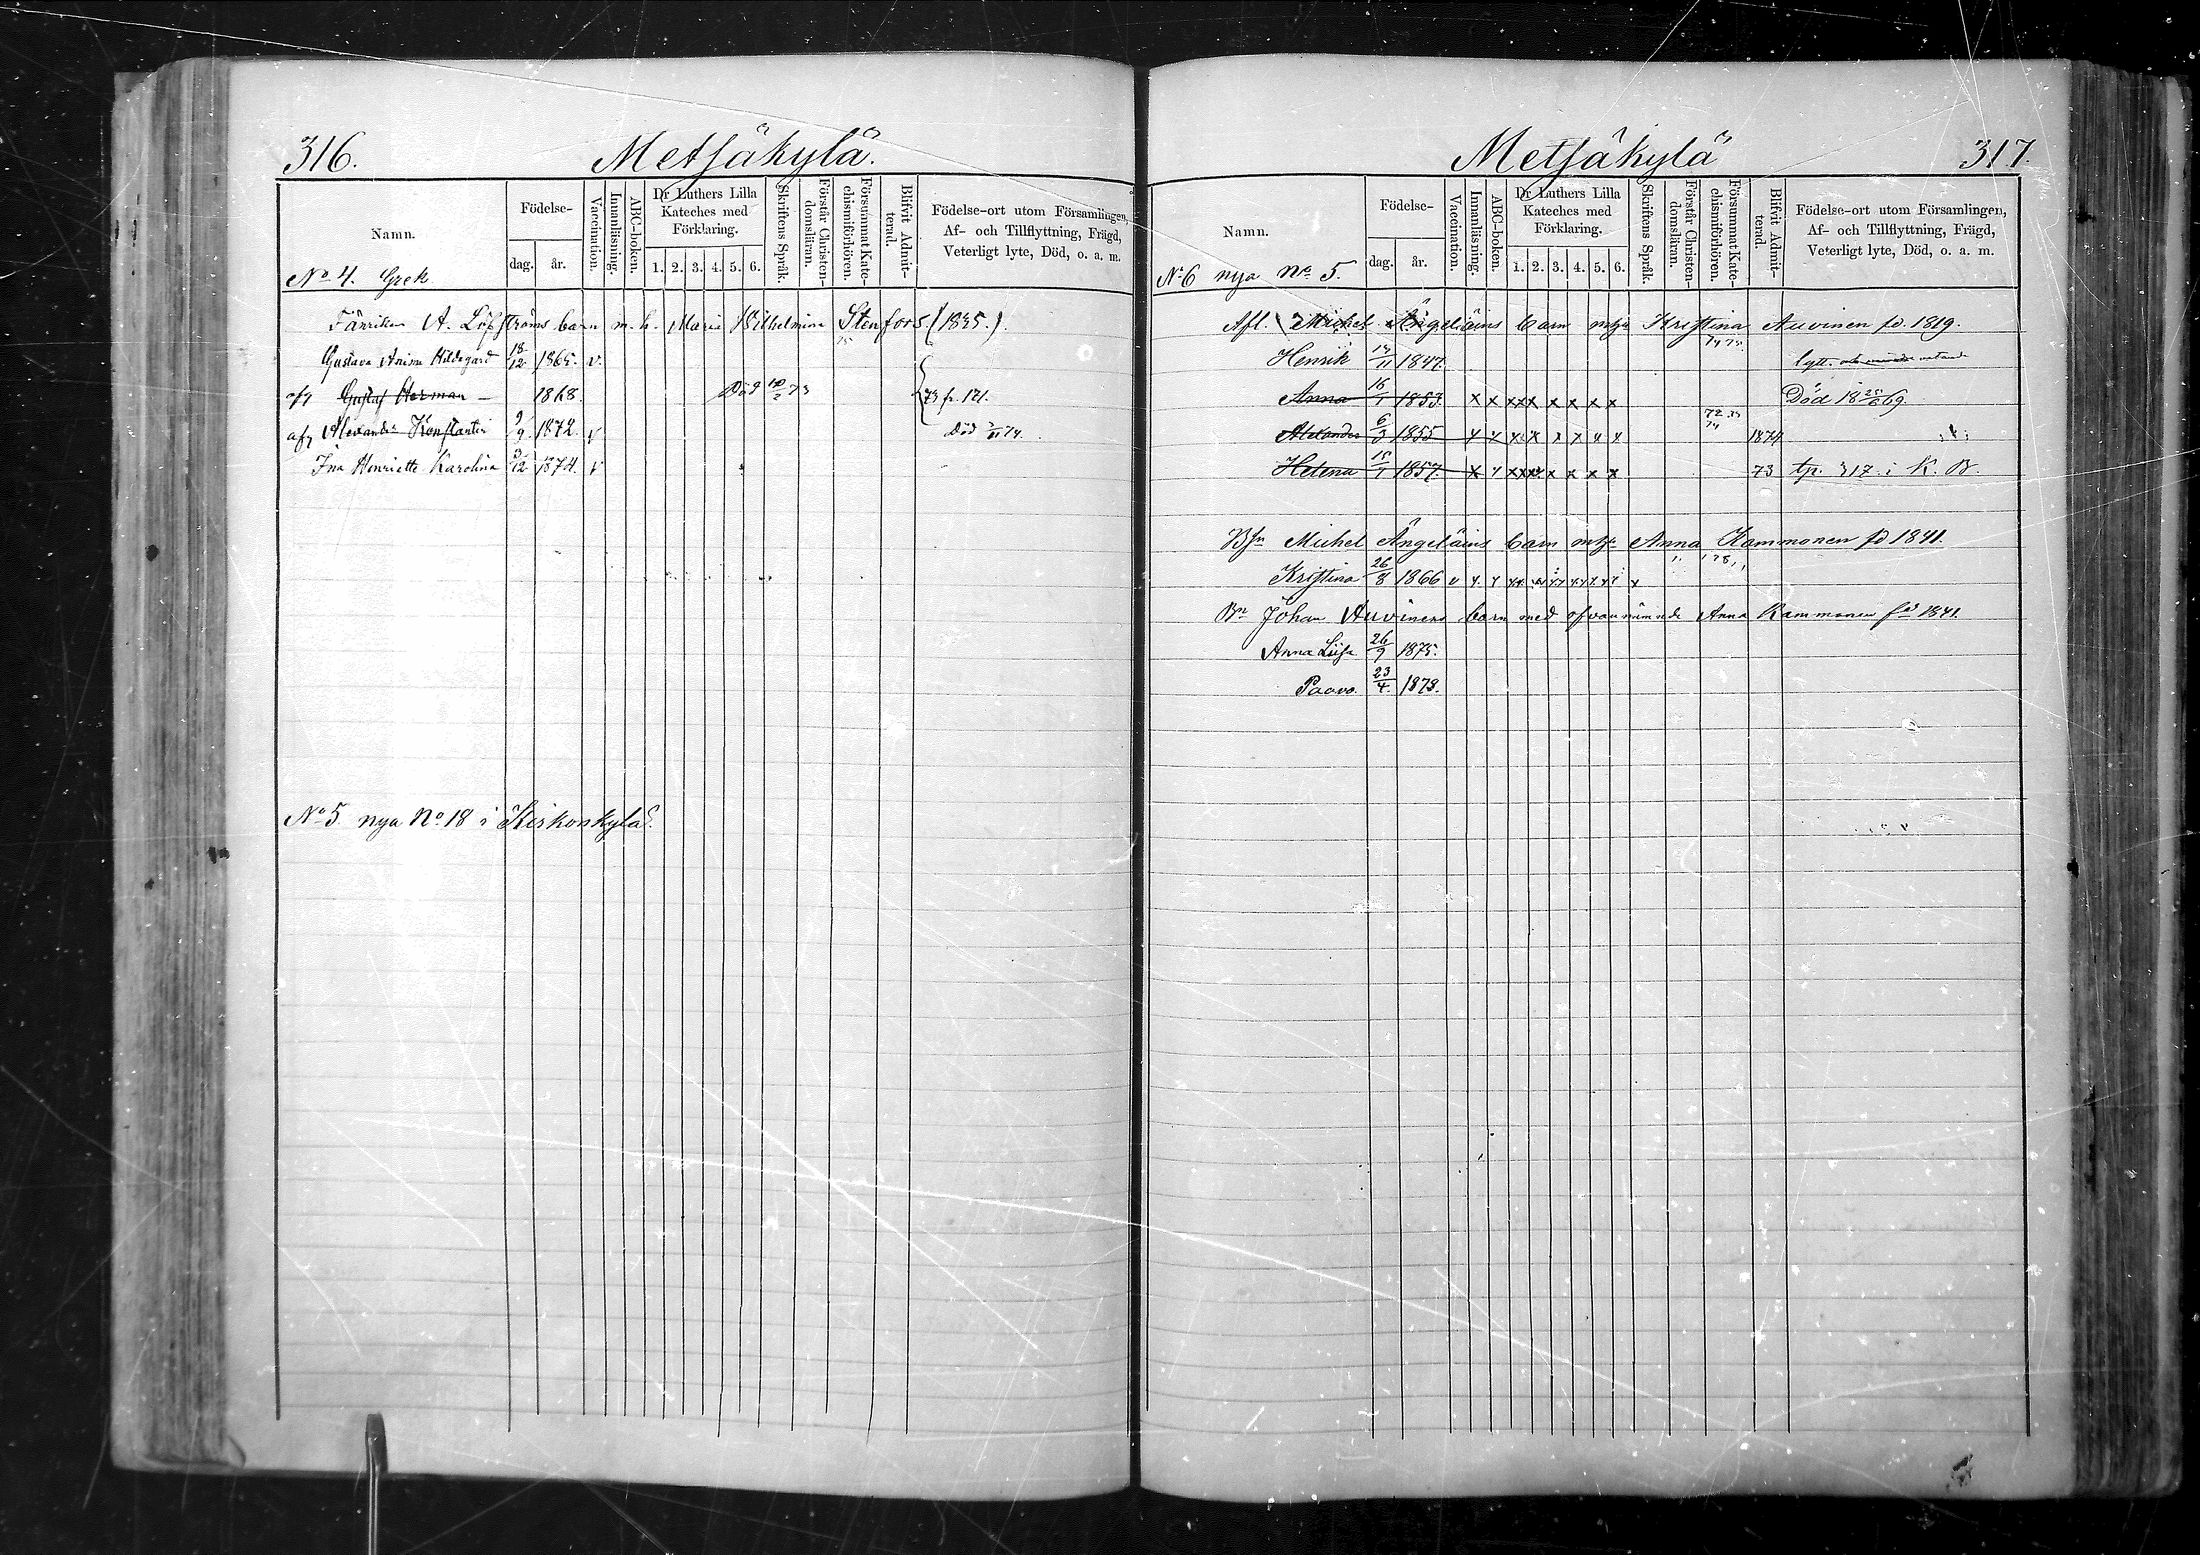 316. Metsäkylä.
Namn. Födelse- dag. år. Vaccination. Innanläsning. ABC-boken. Dr Luthers Lilla Kateches med Förklaring. 1. 2. 3. 4. 5. 6. Skriftens Språk. Förstår Christendomsläran. Försummat Katechismiförhören. Blifvit Admitterad. Födelse-ort utom Församlingen, Af- och Tillflyttning, Frägd, Veterligt lyte, Död, o. a. m.
No 4. Grek.
Fänriken A. Löfströms barn m. h. Maria Wilhelmina Stenfors. (1835.)
Gustava Hildegard 18/12 1865. v.
Gustaf Herman 1868. Död 73 73 fr. 121.
Alexander Konstantin 9/9 1872. v Död 74.
Ina Henriette Karolina 3/12 1874. v
No 5. nya No 18 i Kirkonkylä.
Metsäkylä 317.
Namn. Födelse- dag. år. Vaccination. Innanläsning. ABC-boken. Dr Luthers Lilla Kateches med Förklaring. 1. 2. 3. 4. 5. 6. Skriftens Språk. Förstår Christendomsläran. Försummat Katechismiförhören. Blifvit Admitterad. Födelse-ort utom Församlingen, Af- och Tillflyttning, Frägd, Veterligt lyte, Död, o. a. m.
No 6 nya No 5.
Afl. Michel Ängeläins barn Kristina Auvinen fd. 1819.
Henrik 1847.
Anna 16/1 1853 x x x x x x x x x Död 18 69.
Alexander 6/3 1855 x x x x x x x x 1874
Helena 15/1 1857. x x x x x x x x 73 tp. 317 i K. B.
Bsn Michel Ängeläins barn Anna Kammonen fd 1841.
Kristina 26/8 1866 v
Bn Johan Auvinens barn med ofvannämnde Anna Kammonen fd 1841.
Anna Lisa 26/9 1875.
Paavo. 23/4. 1878.